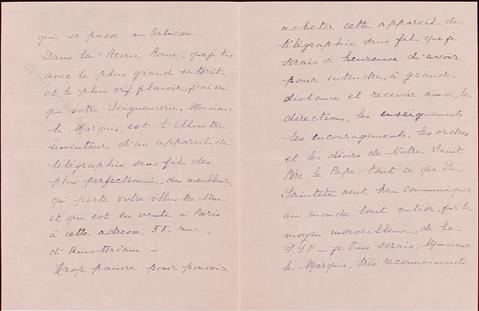 qui se passe au Vatican
Dans la Revue Rome, que je lis
avec le plus grand intérêt,
et le plus vif plaisir, j'ai vu
que votre Seigneurie, Monsieur
le Marquis, est l'illustre
inventeur d'un appareil de
télégraphie sans fil des
plus perfectionnés, des meilleurs,
qui porte votre illustre nom
et qui est en vente à Paris,
à cette adresse: 55, rue
d'Amsterdam –
Trop pauvre pour pouvoir
acheter cette appareil de
télégraphie sans fil que je
serais si heureuse d'avoir
pour entendre, à grande
distance et recevoir ainsi, les
directions, les enseignements,
les encouragements, les ordres
et les désirs de Notre Saint
Père le Pape; tout ce que Sa
Sainteté veut bien communiquer
au monde tout entier, par le
moyen merveilleux, de la
T.S.F – je vous serais, Monsieur
le Marquis, très reconnaissante